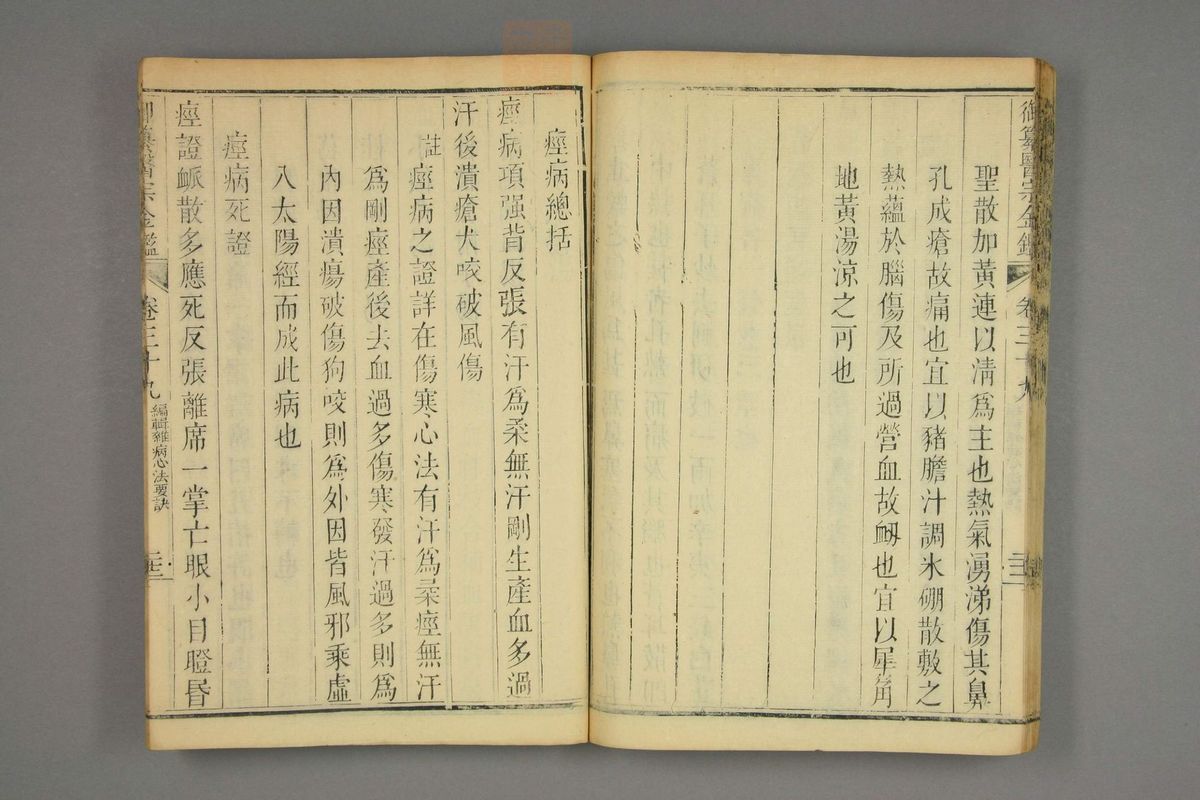 御纂醫宗金鑑 卷三十九
聖散加黃連以淸爲主也熱氣湧涕傷其鼻
孔成瘡故痛也宜以豬膽汁調氷硼散敷之
熱蘊於腦傷及所過營血故衄也宜以犀角
地黃湯涼之可也
痙病總括
痙病項强背反張有汗爲柔無汗剛生產血多過
汗後潰瘡犬咬破風傷
註痙病之證詳在傷寒心法有汗爲柔痙無汗
爲剛痙產後去血過多傷寒發汗過多則爲
內因潰瘍破傷狗咬則爲外因皆風邪乘虛
入太陽經而成此病也
痙病死證
痙證脈散多應死反張離席一掌亡眼小目瞪昏
御纂醫宗金鑑 卷三十九 編輯雜病心法要訣